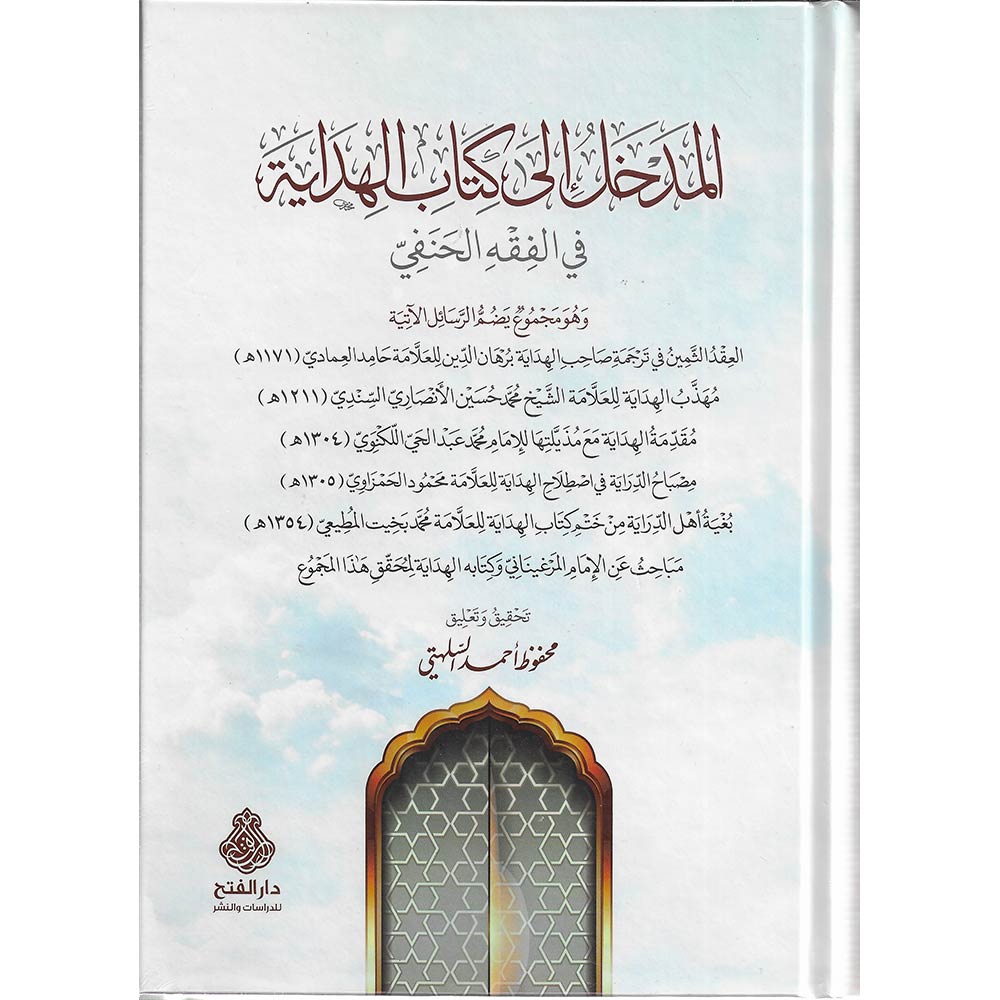 المَدْخَلُ إلى كِتَابِ الهِدَايَة
في الفِقْهِ الحَنَفِيّ
وَهُوَ مَجْمُوعٌ يَضُمُّ الرَّسَائِلَ الآتِيَة
العِقْدُ الثَّمِينُ في تَرْجَمَةِ صَاحِبِ الهِدَايَةِ بُرْهَانِ الدِّين لِلعَلَّامَة حَامِد العِمَادِيّ (١١٧١هـ)
مُهَذَّبُ الهِدَايَةِ لِلعَلَّامَة الشَّيْخ مُحَمَّد حُسَيْن الأَنْصَارِيّ السِّنْدِيّ (١٢١١هـ)
مُقَدِّمَةُ الهِدَايَة مَعَ مُذَيَّلَتِهَا لِلإِمَامِ مُحَمَّد عَبْد الحَيّ اللَّكْنَوِيّ (١٣٠٤هـ)
مِصْبَاحُ الدِّرَايَة في اصْطِلَاحِ الهِدَايَة لِلعَلَّامَة مَحْمُود الحَمْزَاوِيّ (١٣٠٥هـ)
بُغْيَةُ أَهْلِ الدِّرَايَة مِنْ خَتْمِ كِتَابِ الهِدَايَة لِلعَلَّامَة مُحَمَّد بَخِيت المُطِيعِيّ (١٣٥٤هـ)
مَبَاحِثُ عَنِ الإِمَامِ المَرْغِينَانِيّ وَكِتَابِه الهِدَايَة لِمُحَقِّقِ هَذَا المَجْمُوع
تَحْقِيقُ وَتَعْلِيق
محفوظ أحمد السّلهتي
دار الفتح
للدراسات والنشر